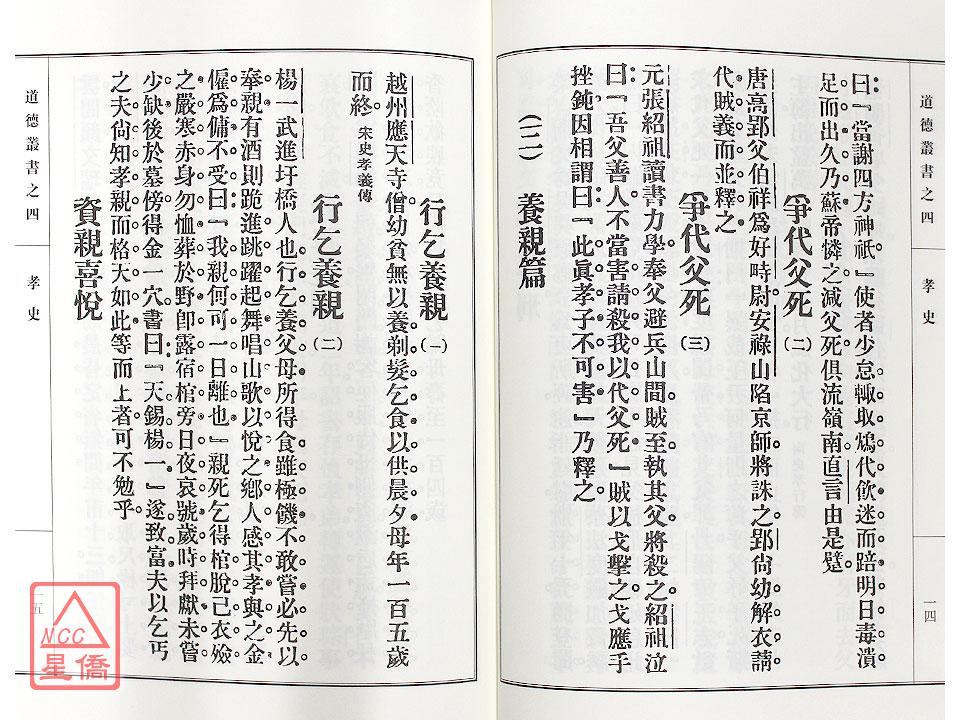 道德叢書之四
孝史
一四
曰『當謝四方神祇』使者少怠輙取鴆代飮迷而踣明日毒潰
足而出久乃蘇帝憐之減父死俱流嶺南直言由是躄
爭代父死(二)
唐高郢父伯祥爲好時尉安祿山陷京師將誅之郢尙幼解衣請
代賊義而並釋之
爭代父死(三)
元張紹祖讀書力學奉父避兵山間賊至執其父將殺之紹祖泣
曰『吾父善人不當害請殺我以代父死』賊以戈擊之戈應手
挫鈍因相謂曰『此眞孝子不可害』乃釋之
(二)養親篇
行乞養親(一)
越州應天寺僧幼貧無以養剃髮乞食以供晨夕母年一百五歲
而終 宋史孝義傳
行乞養親(二)
楊一武進圩橋人也行乞養父母所得食雖極饑不敢嘗必先以
奉親有酒則跪進跳躍起舞唱山歌以悅之鄉人感其孝與之金
僱爲傭不受曰『我親何可一日離也』親死乞得棺脫己衣殮
之嚴寒赤身勿恤葬於野卽露宿棺旁日夜哀號歲時拜獻未嘗
少缺後於墓傍得金一穴書曰『天錫楊一』遂致富夫以乞丐
之夫尙知孝親而格天如此等而上者可不勉乎
資親喜悅
道德叢書之四
孝史
一五
NCC
星僑